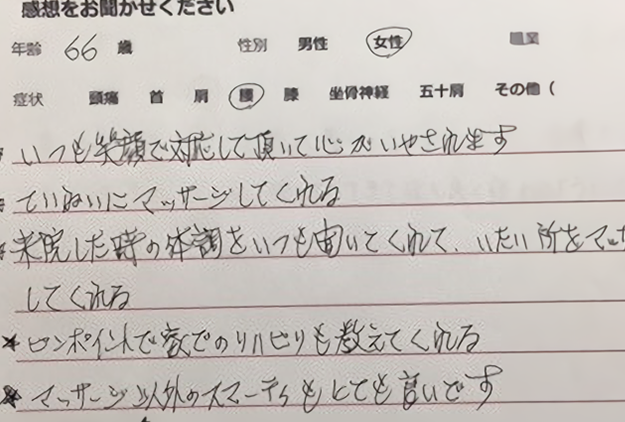 感想をお聞かせください
年齢 66 歳 性別 男性 女性 職業
症状 頭痛 首 肩 腰 膝 坐骨神経 五十肩 その他 (
いつも笑顔で対応して頂いて心がいやされます
ていねいにマッサージしてくれる
来院した時の体調をいつも聞いてくれて、いたい所をマッサ
してくれる
★ピンポイントで家でのリハビリも教えてくれる
★マッサージ以外の もとても

です